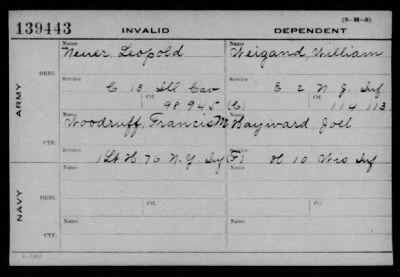 (3—H—5)
139443 INVALID DEPENDENT
Name Name
Neuer, Leopold Weigand, William
ORIG.
Service Service
C 13 Ill Cav E 2 N. J. Inf
Ctf. Ctf.
98945 (C) 114 113
ARMY
Name Name
Woodruff, Francis M Hayward, Joel
CTF.
Service Service
1 Lt H 76 N.Y. Inf (F) H 10 Wis Inf
Name Name
ORIG.
Service Ctf. Service Ctf.
NAVY
Name Name
CTF.
Service Service